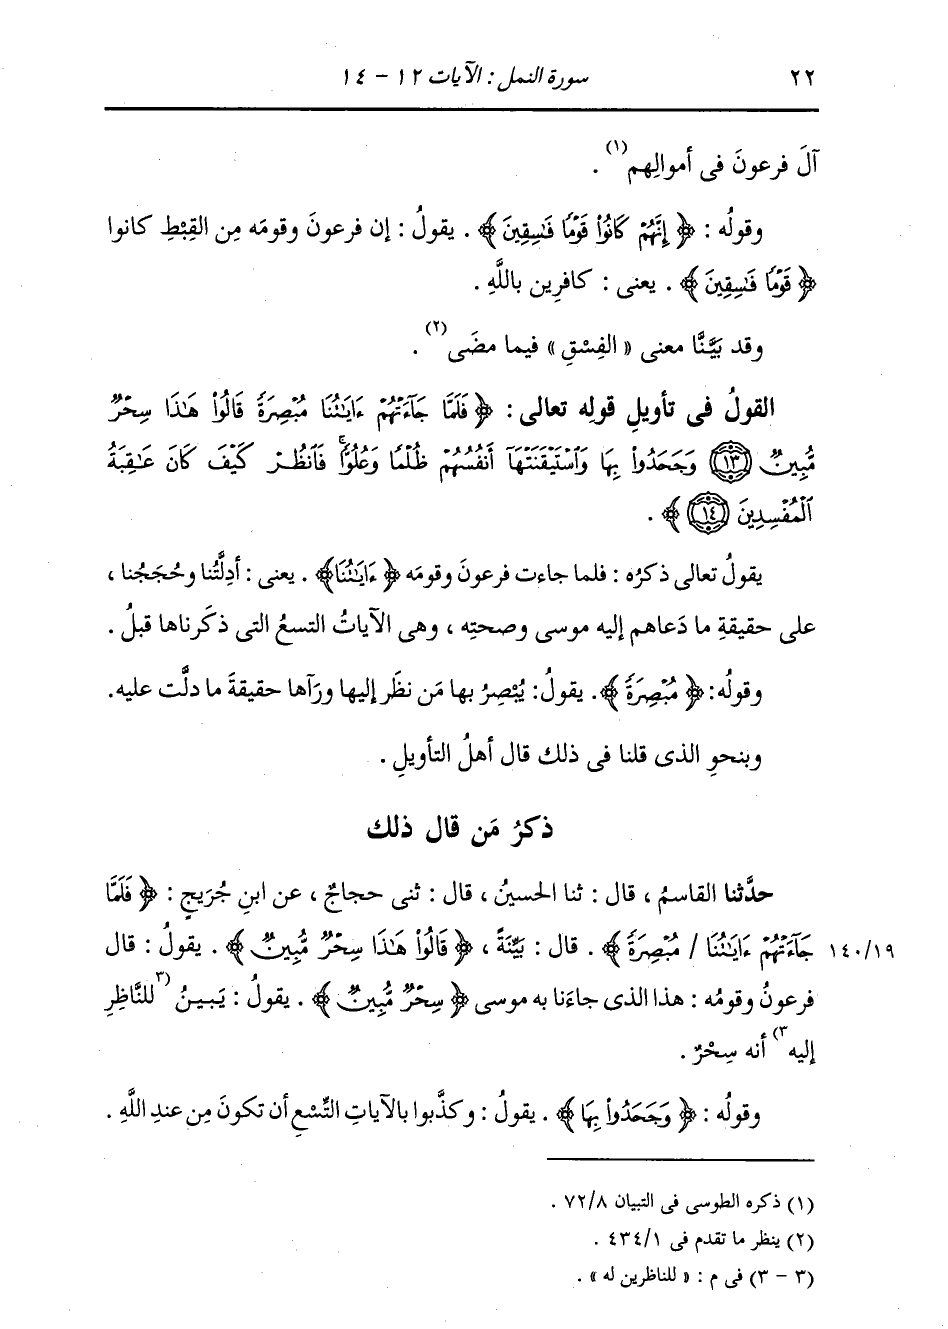 ٢٢ سورة النمل : الآيات ١٢ - ١٤
آلَ فرعونَ فى أموالِهم(١) .
وقولُه : ﴿ إِنَّهُمْ كَانُوا۟ قَوْمًا فَـٰسِقِينَ ﴾ . يقولُ : إن فرعونَ وقومَه مِن القِبْطِ كانوا
﴿ قَوْمًا فَـٰسِقِينَ ﴾ . يعنى : كافرِين باللَّهِ .
وقد بَيَّنَّا معنى « الفِسْقِ » فيما مضَى(٢) .
القولُ فى تأويلِ قولِه تعالى : ﴿ فَلَمَّا جَآءَتْهُمْ ءَايَـٰتُنَا مُبْصِرَةً قَالُوا۟ هَـٰذَا سِحْرٌ
مُّبِينٌ ﴿١٣﴾ وَجَحَدُوا۟ بِهَا وَٱسْتَيْقَنَتْهَآ أَنفُسُهُمْ ظُلْمًا وَعُلُوًّا ۚ فَٱنظُرْ كَيْفَ كَانَ عَـٰقِبَةُ
ٱلْمُفْسِدِينَ ﴿١٤﴾ ﴾ .
يقولُ تعالى ذكرُه : فلما جاءت فرعونَ وقومَه ﴿ ءَايَـٰتُنَا﴾ . يعنى : أدِلَّتُنا وحُجَجُنا ،
على حقيقةِ ما دَعاهم إليه موسى وصحتِه ، وهى الآياتُ التسعُ التى ذكَرناها قبلُ .
وقولُه: ﴿ مُبْصِرَةً ﴾. يقولُ: يُبْصِرُ بها مَن نظَر إليها ورَآها حقيقةَ ما دلَّت عليه.
وبنحوِ الذى قلنا فى ذلك قال أهلُ التأويلِ .
ذكرُ مَن قال ذلك
حدَّثنا القاسمُ ، قال : ثنا الحسينُ ، قال : ثنى حجاجٌ ، عن ابنِ جُرَيجٍ : ﴿ فَلَمَّا
١٤٠/١٩ جَآءَتْهُمْ ءَايَـٰتُنَا / مُبْصِرَةً ﴾ . قال : بَيِّنَةً ، ﴿ قَالُوا۟ هَـٰذَا سِحْرٌ مُّبِينٌ ﴾ . يقولُ : قال
فرعونُ وقومُه : هذا الذى جاءَنا به موسى ﴿ سِحْرٌ مُّبِينٌ ﴾ . يقولُ : يَبينُ (٣ للنَّاظِرِ
إليه ٣) أنه سِحْرٌ .
وقولُه : ﴿ وَجَحَدُوا۟ بِهَا ﴾ . يقولُ : وكذَّبوا بالآياتِ التِّسْعِ أن تكونَ مِن عندِ اللَّهِ .
(١) ذكره الطوسى فى التبيان ٧٢/٨ .
(٢) ينظر ما تقدم فى ٤٣٤/١ .
(٣ - ٣) فى م : « للناظرين له » .